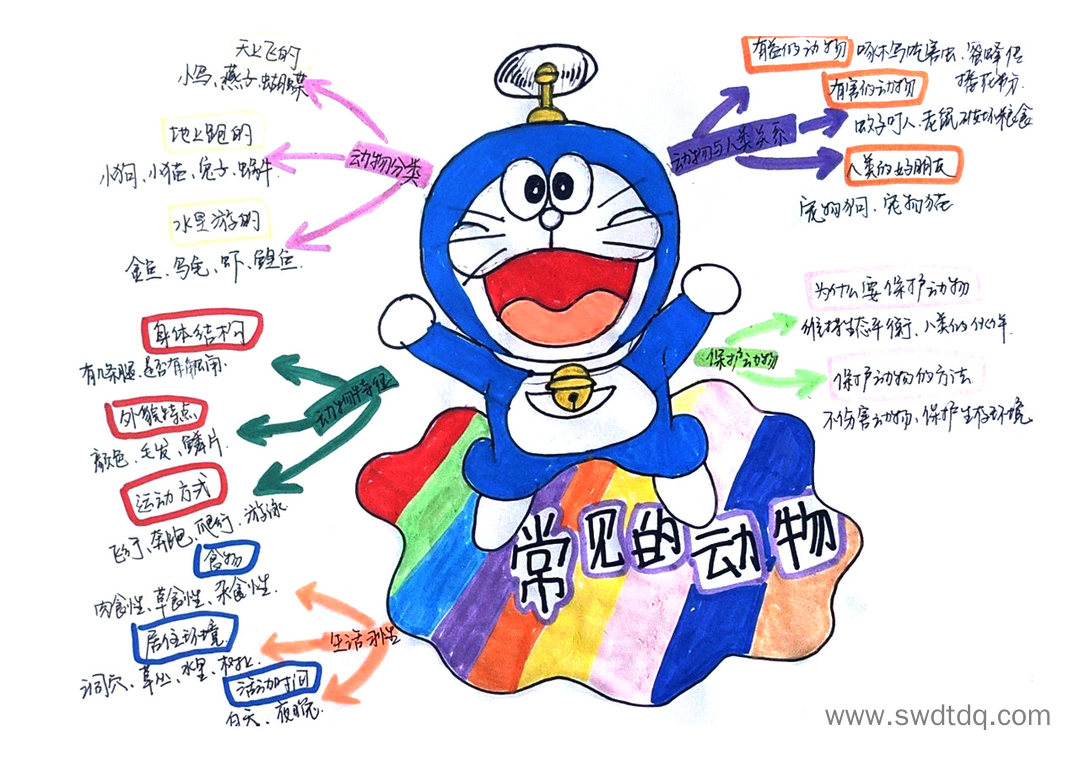 常见的动物
动物分类
天上飞的
小鸟、燕子、蝴蝶
地上跑的
小狗、小猫、兔子、蜗牛
水里游的
金鱼、乌龟、虾、鳄鱼
动物特征
身体结构
有几条腿、是否有翅膀
外貌特点
颜色、毛发、鳞片.
运动方式
飞行、奔跑、爬行、游泳
生活习性
食物
肉食性、草食性、杂食性.
居住环境
洞穴、草丛、水里、树上.
活动时间
白天、夜晚.
动物与人类关系
有益的动物
啄木鸟吃害虫、蜜蜂传
播花粉.
有害的动物
蚊子叮人、老鼠破坏粮食
人类的好朋友
宠物狗、宠物猫
保护动物
为什么要保护动物
维持生态平衡、人类的伙伴.
保护动物的方法
不伤害动物、保护生存环境
www.swdtdq.com